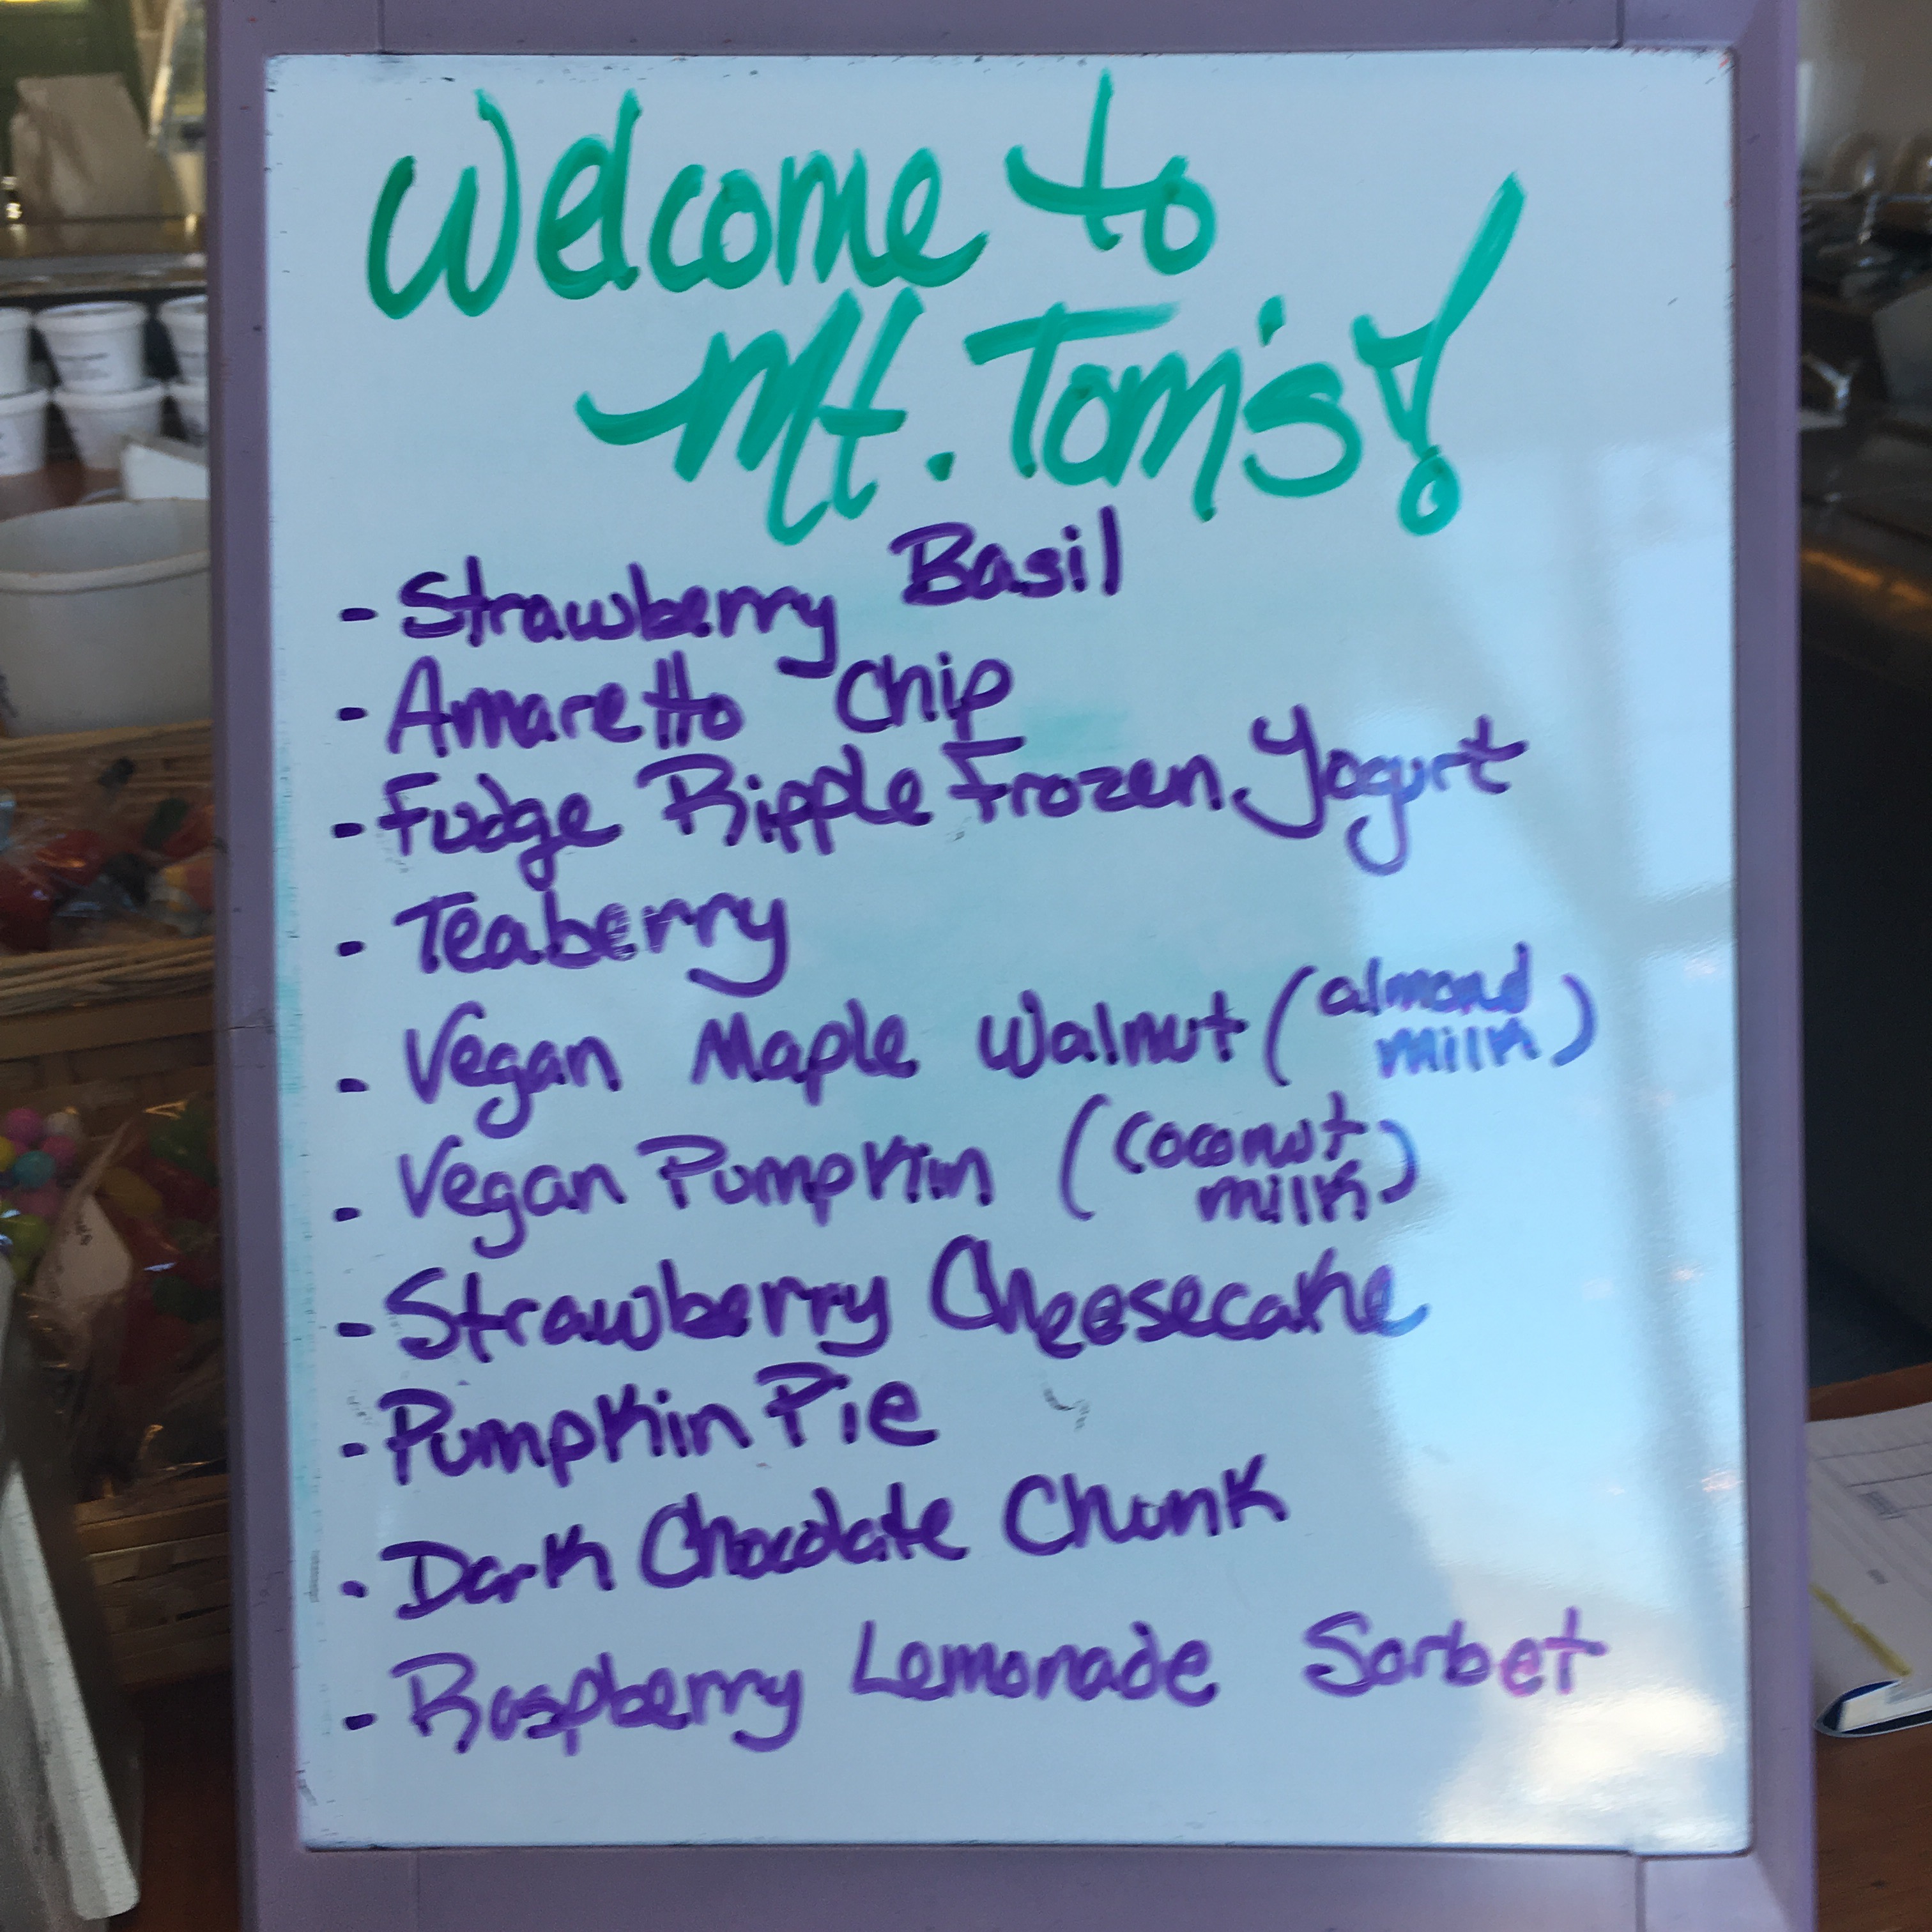 Welcome to
Mt. Tom's!
- Strawberry Basil
- Amaretto Chip
- Fudge Ripple Frozen Yogurt
- Teaberry
- Vegan Maple Walnut (almond
milk)
- Vegan Pumpkin (coconut
milk)
- Strawberry Cheesecake
- Pumpkin Pie
- Dark Chocolate Chunk
- Raspberry Lemonade Sorbet